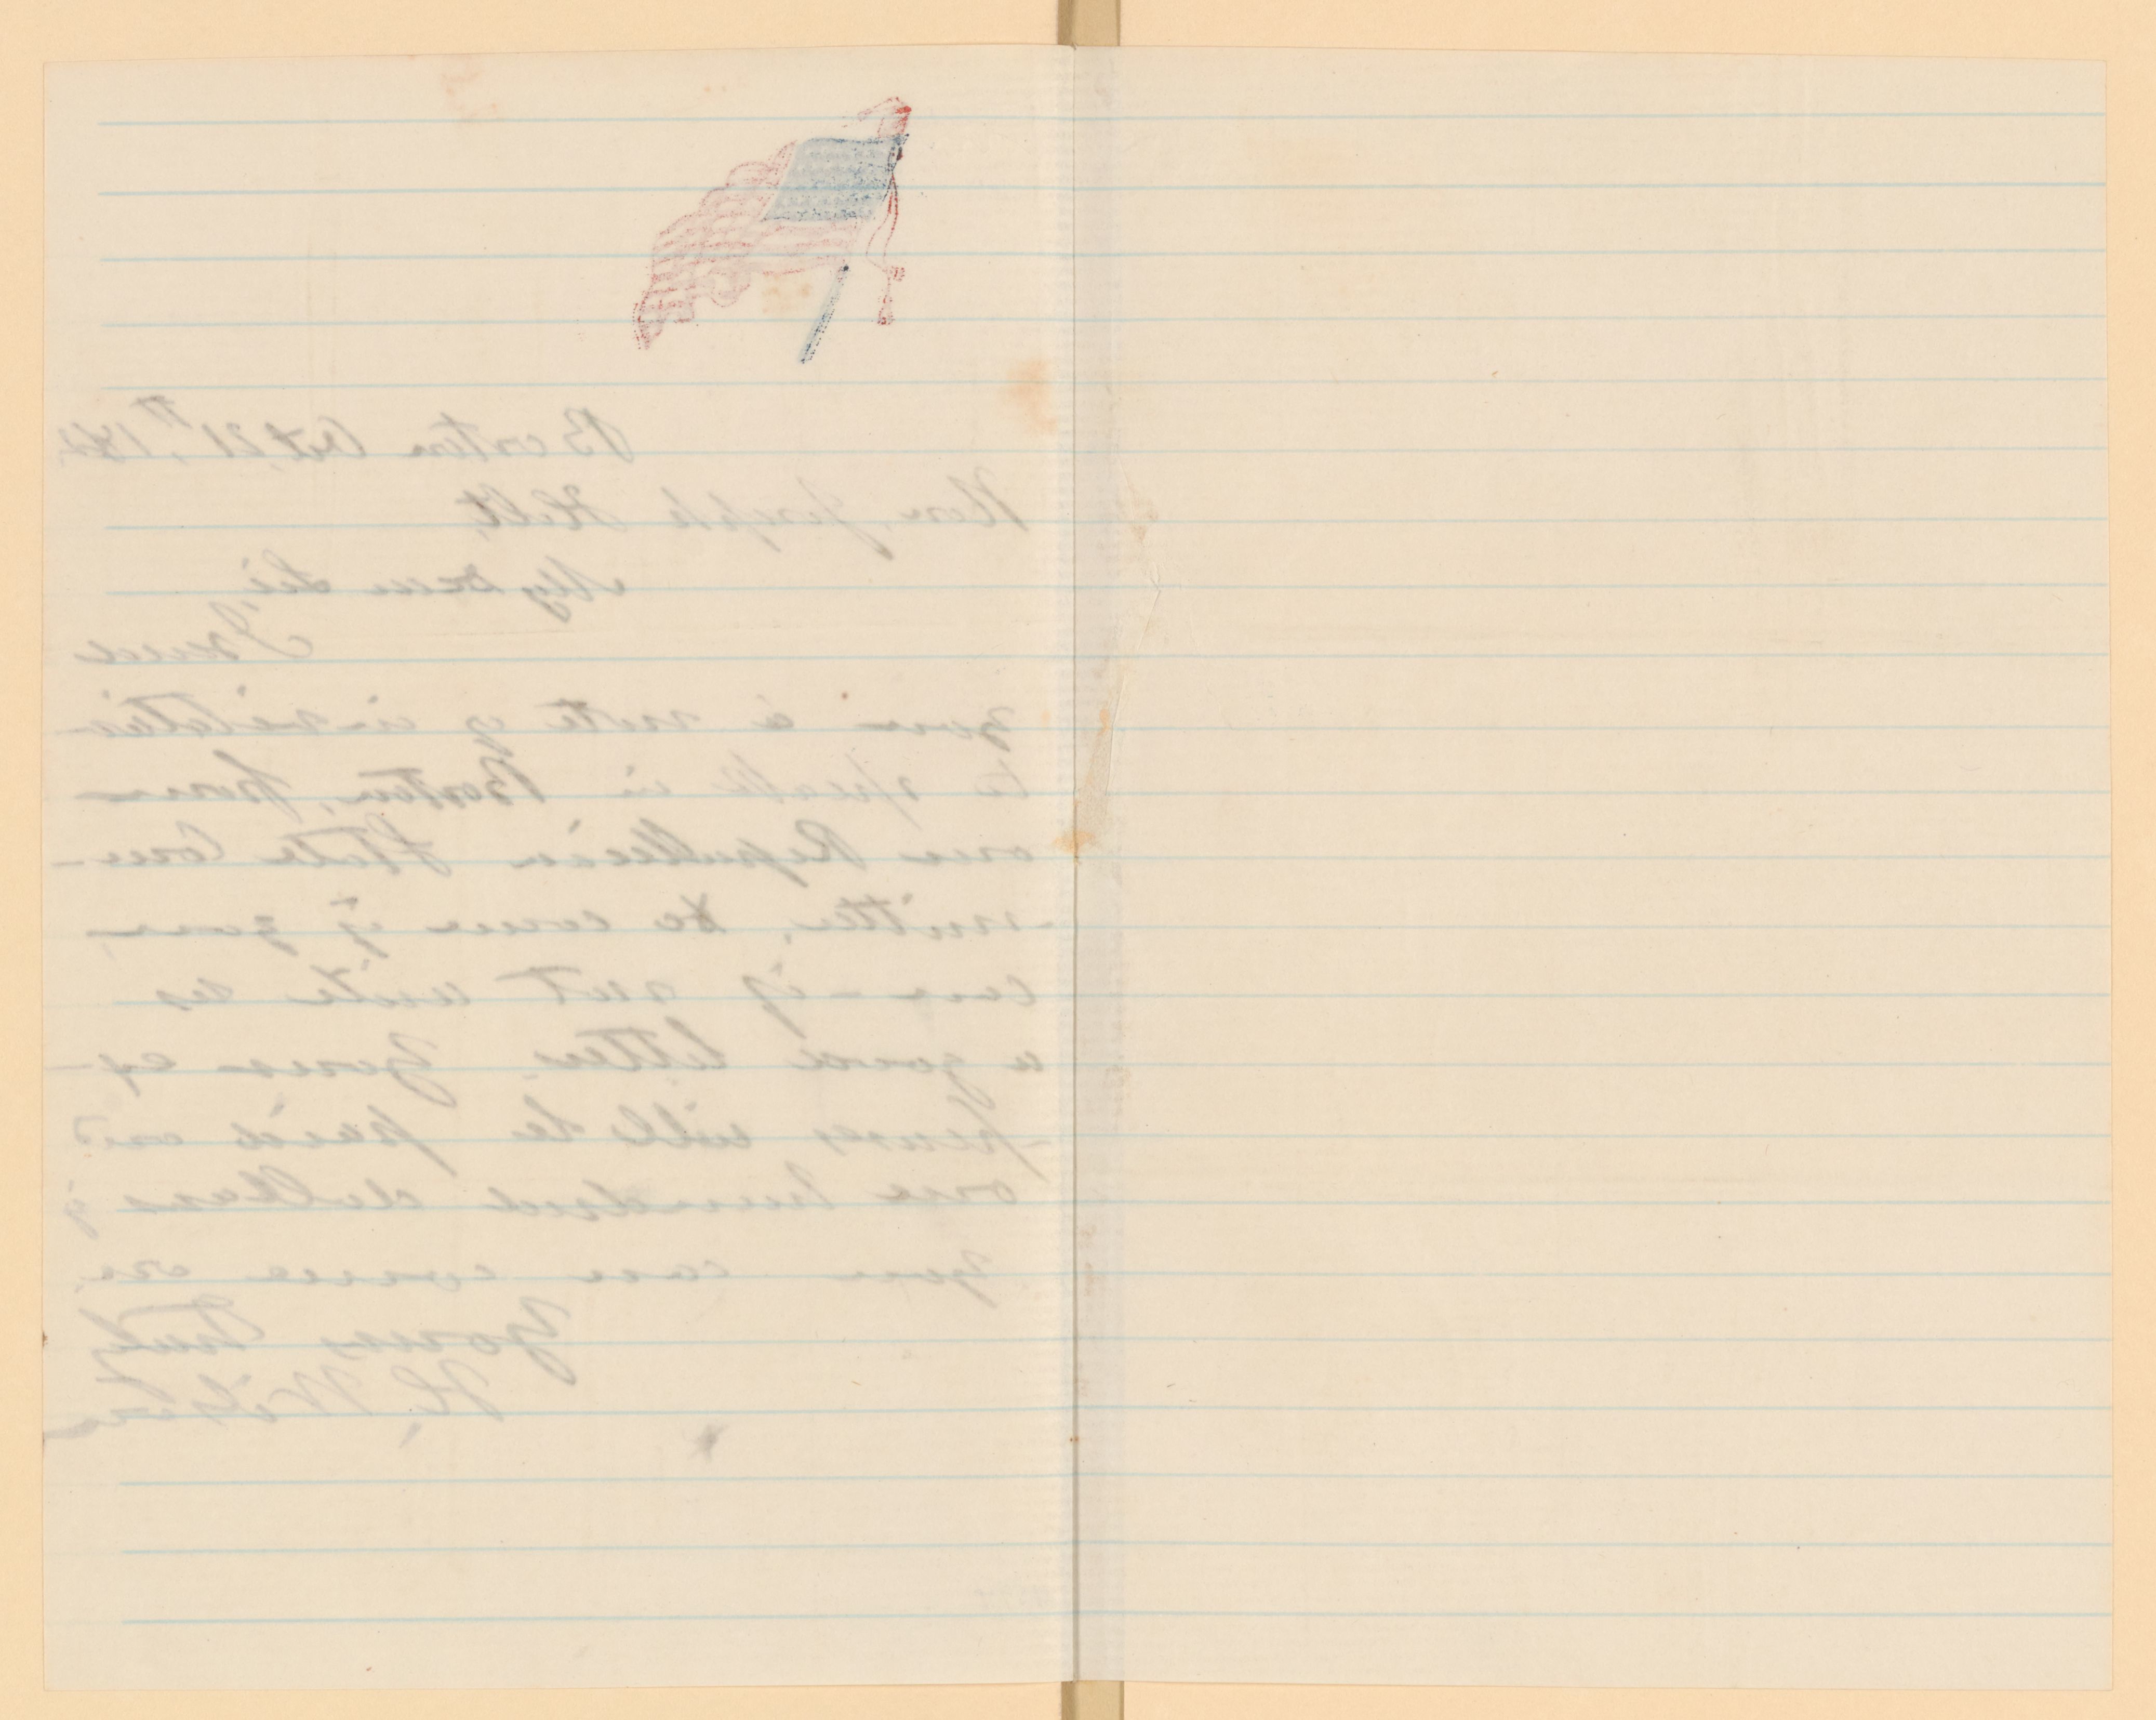 Boston Oct, 21st, 186
Hon. Joseph Holt,
My Dear Sir,
I send
you a note of invitation
to speak in Boston, from
our Republican State Com-
-mittee. Do come if you
can - if not write us
a good letter. Your ex-
-penses will be paid and
one hundred dollars if
you can come on.
Yours truly
H. Wilson